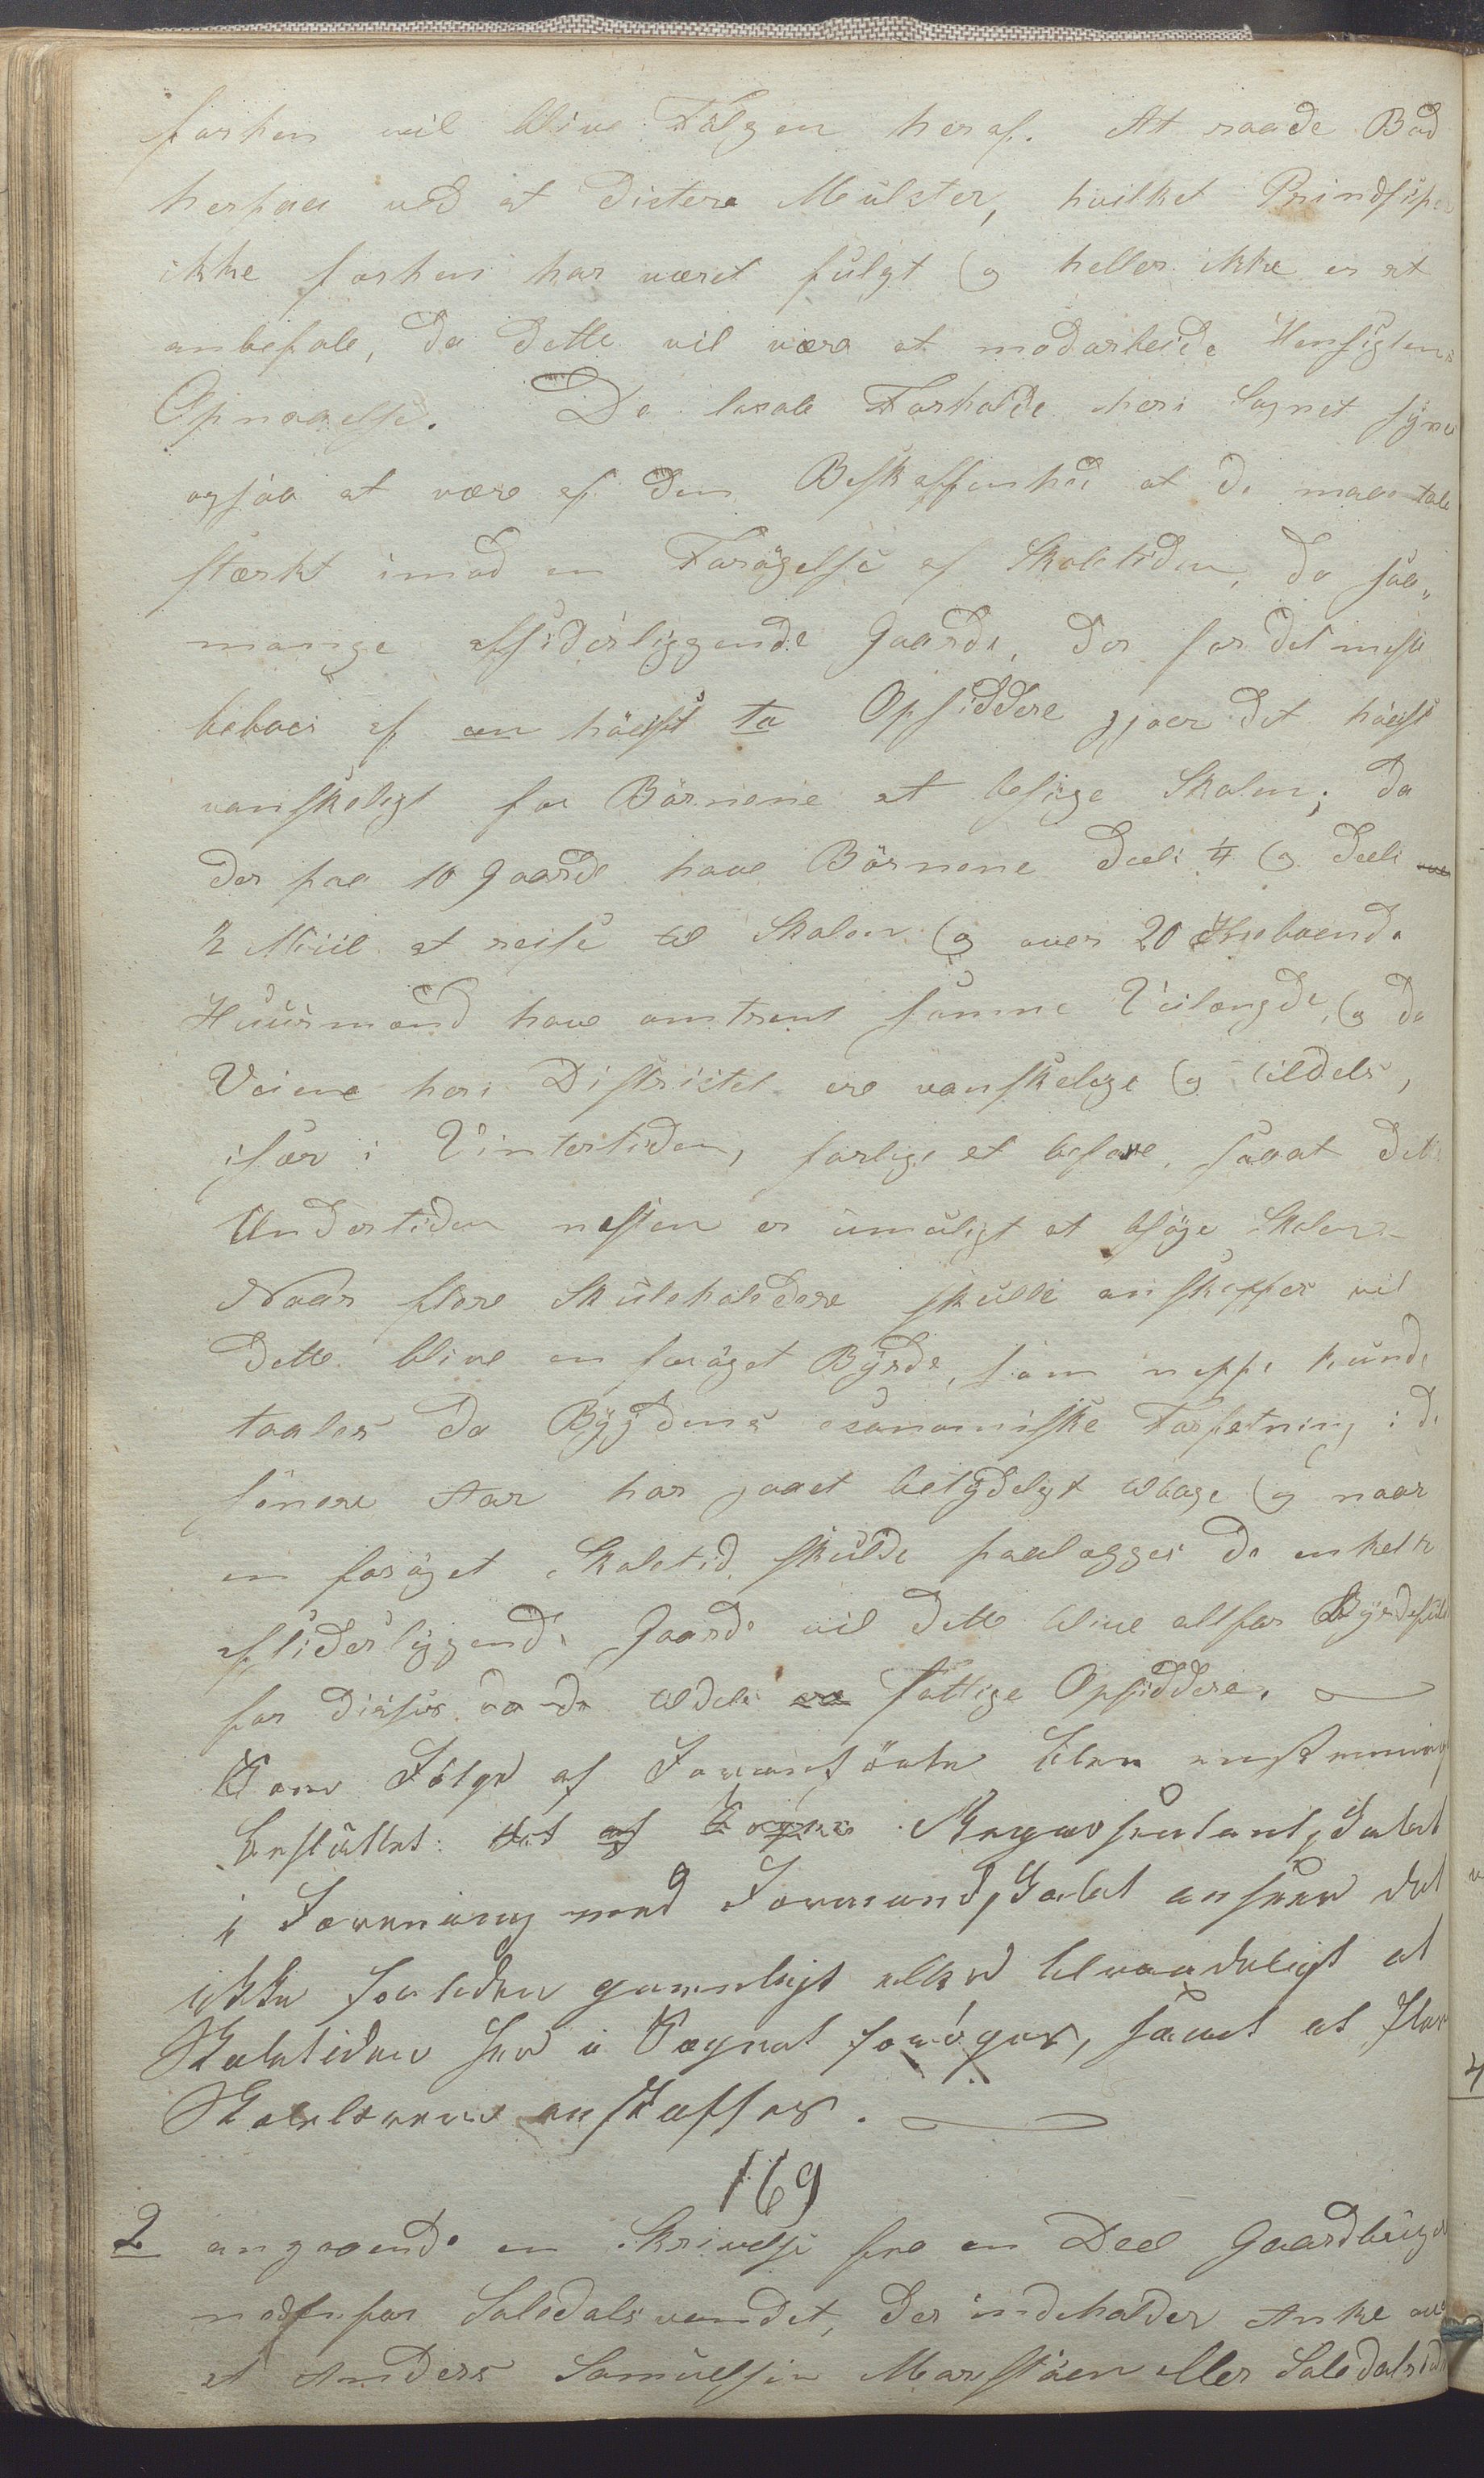 forhen vil blive Følgen heraf. At raade Bod
herpaa ved at dictere Mulkter, hvilket Prindsip
ikke forhen har været fulgt og heller ikke er at
anbefale, da dette vil være at modarbeide Hensigtens
Opnaaelse. De locale Forholde her i Sognet synes
ogsaa at være af den Beskaffenhed at de maae tale
stærkt imod en Forøgelse af Skoletiden, da saa„
mange afsidesliggende Gaarde, der for det meste
beboes af een høist to Opsiddere gjøer det høist
vanskeligt for Børnene at besøge Skolen; da
der paa 10 Gaarde have Børnene deels ¼ og deels
½ Miil at reise til Skolen og over 20 Huusmænd
have omtrent samme Veilængde, og da
Veiene her i Districtet ere vanskelige og tildels,
især i Vintertiden, farlige at befare, saaat dette
Undertiden næsten er umuligt at besøge Skolen
Naar flere Skuleholdere skulle anskaffes vil
dette blive en forøget Byrde, som neppe kunde
taales da Bygdens economiske Forfatning i de
senere Aar har gaaet betydeligt tilbage og naar
en forøget Skoletid skulde paalægges de enkelte
afsidesliggende Gaarde vil dette blive altfor Byrdefuld
for disses da de tildels ere fattige Opsiddere.
Som Følge af Foranførte blev enstemmig
besluttet: Repræsentantskabet
i Forening med Formandskabet anseer det
ikke for tiden gavnligt eller tilraadeligt at
Skoletiden her i Sognet forøges, samt at flere
Skolelærere anskaffes.
169
2 angaaende en Skrivelse fra en Deel Gaardbruger
nedenfor Saledalsvandet, der indeholder Anke over
at Anders Samuelsen Marstøen eller Saledals